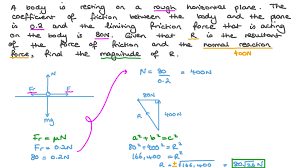 A body is resting on a rough horizontal plane. The
coefficient of friction between the body and the plane
is 0.2 and the limiting friction force that is acting
on the body is 80N. Given that R is the resultant
of the force of friction and the normal reaction
force, find the magnitude of R.
400N
N
Fr
F
mg
N = 80/0.2 = 400N
80N
R
400N
Fr = μN
Fr = 0.2N
80 = 0.2N
a² + b² = c²
80² + 400² = R²
166,400 = R²
R = ±√166,400 = 80√26 N